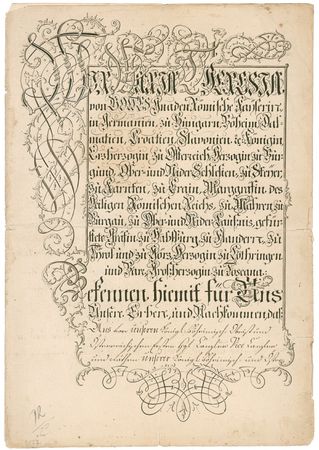 WIR MARIA THERESIA
von GOTTES Gnaden Römische Kayserin,
in Germanien, zu Hungarn, Böheim, Dal-
matien, Croatien, Slavonien, &c Königin,
Erzherzogin zu Österreich, Herzogin zu Bur-
gund, Ober- und Nider Schlesien, zu Steyer,
zu Kärnten, zu Crain, Marggräfin des
Heiligen Römischen Reichs, zu Mähren, zu
Burgau, zu Ober- und Nider Lausniz, gefür-
stete Gräfin zu Habspurg, zu Flandern,
Tyrol, und zu Görz, Herzogin zu Lothringen
und Bar, Großherzogin zu Toscana:
Bekennen hiemit für Uns
Unsere Erben, und Nachkommen, daß
Uns von unserm Königl Böheimisch Obrist und
Österreichischen Ersten Hof Canzler Vice Canzler
und unserer Königl Böheimisch und